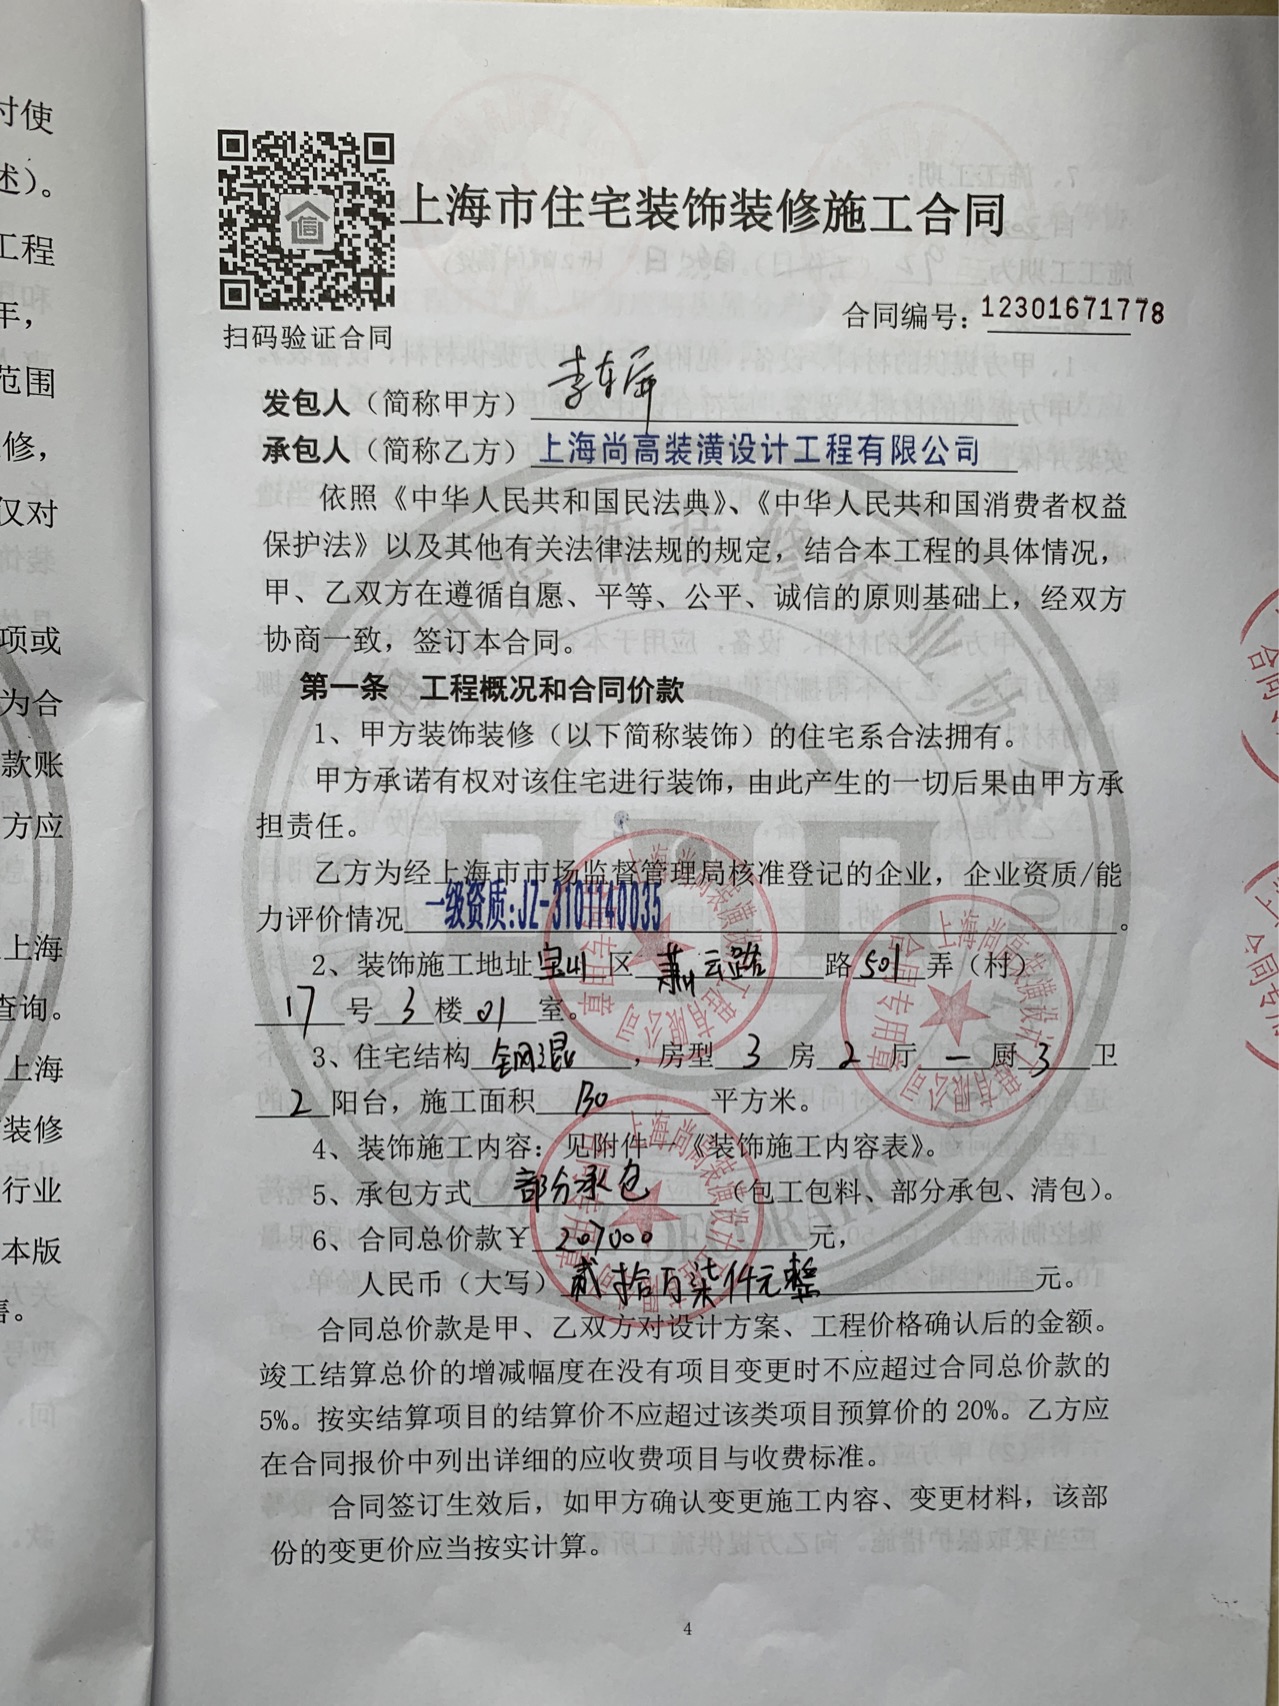 寸使
述）。
工程
年，
范围
修，
仅对
项或
为合
款账
方应
上海
查询。
上海
装修
行业
本版
信
上海市住宅装饰装修施工合同
扫码验证合同
合同编号：12301671778
发包人（简称甲方）李东屏
承包人（简称乙方）上海尚高装潢设计工程有限公司
依照《中华人民共和国民法典》、《中华人民共和国消费者权益
保护法》以及其他有关法律法规的规定，结合本工程的具体情况，
甲、乙双方在遵循自愿、平等、公平、诚信的原则基础上，经双方
协商一致，签订本合同。
第一条 工程概况和合同价款
1、甲方装饰装修（以下简称装饰）的住宅系合法拥有。
甲方承诺有权对该住宅进行装饰，由此产生的一切后果由甲方承
担责任。
乙方为经上海市市场监督管理局核准登记的企业，企业资质/能
力评价情况一级资质:JZ-3101140035。
2、装饰施工地址宝山区萧云路路501弄（村）
17号3楼01室。
3、住宅结构钢混，房型3房2厅一厨3卫
2阳台，施工面积130平方米。
4、装饰施工内容：见附件一《装饰施工内容表》。
5、承包方式部分承包（包工包料、部分承包、清包）。
6、合同总价款￥207000元，
人民币（大写）贰拾万柒仟元整元。
合同总价款是甲、乙双方对设计方案、工程价格确认后的金额。
竣工结算总价的增减幅度在没有项目变更时不应超过合同总价款的
5%。按实结算项目的结算价不应超过该类项目预算价的20%。乙方应
在合同报价中列出详细的应收费项目与收费标准。
合同签订生效后，如甲方确认变更施工内容、变更材料，该部
份的变更价应当按实计算。
4
上海尚高装潢设计工程有限公司
合同专用章
上海尚高装潢设计工程有限公司
合同专用章
上海尚高装潢设计工程有限公司
合同专用章